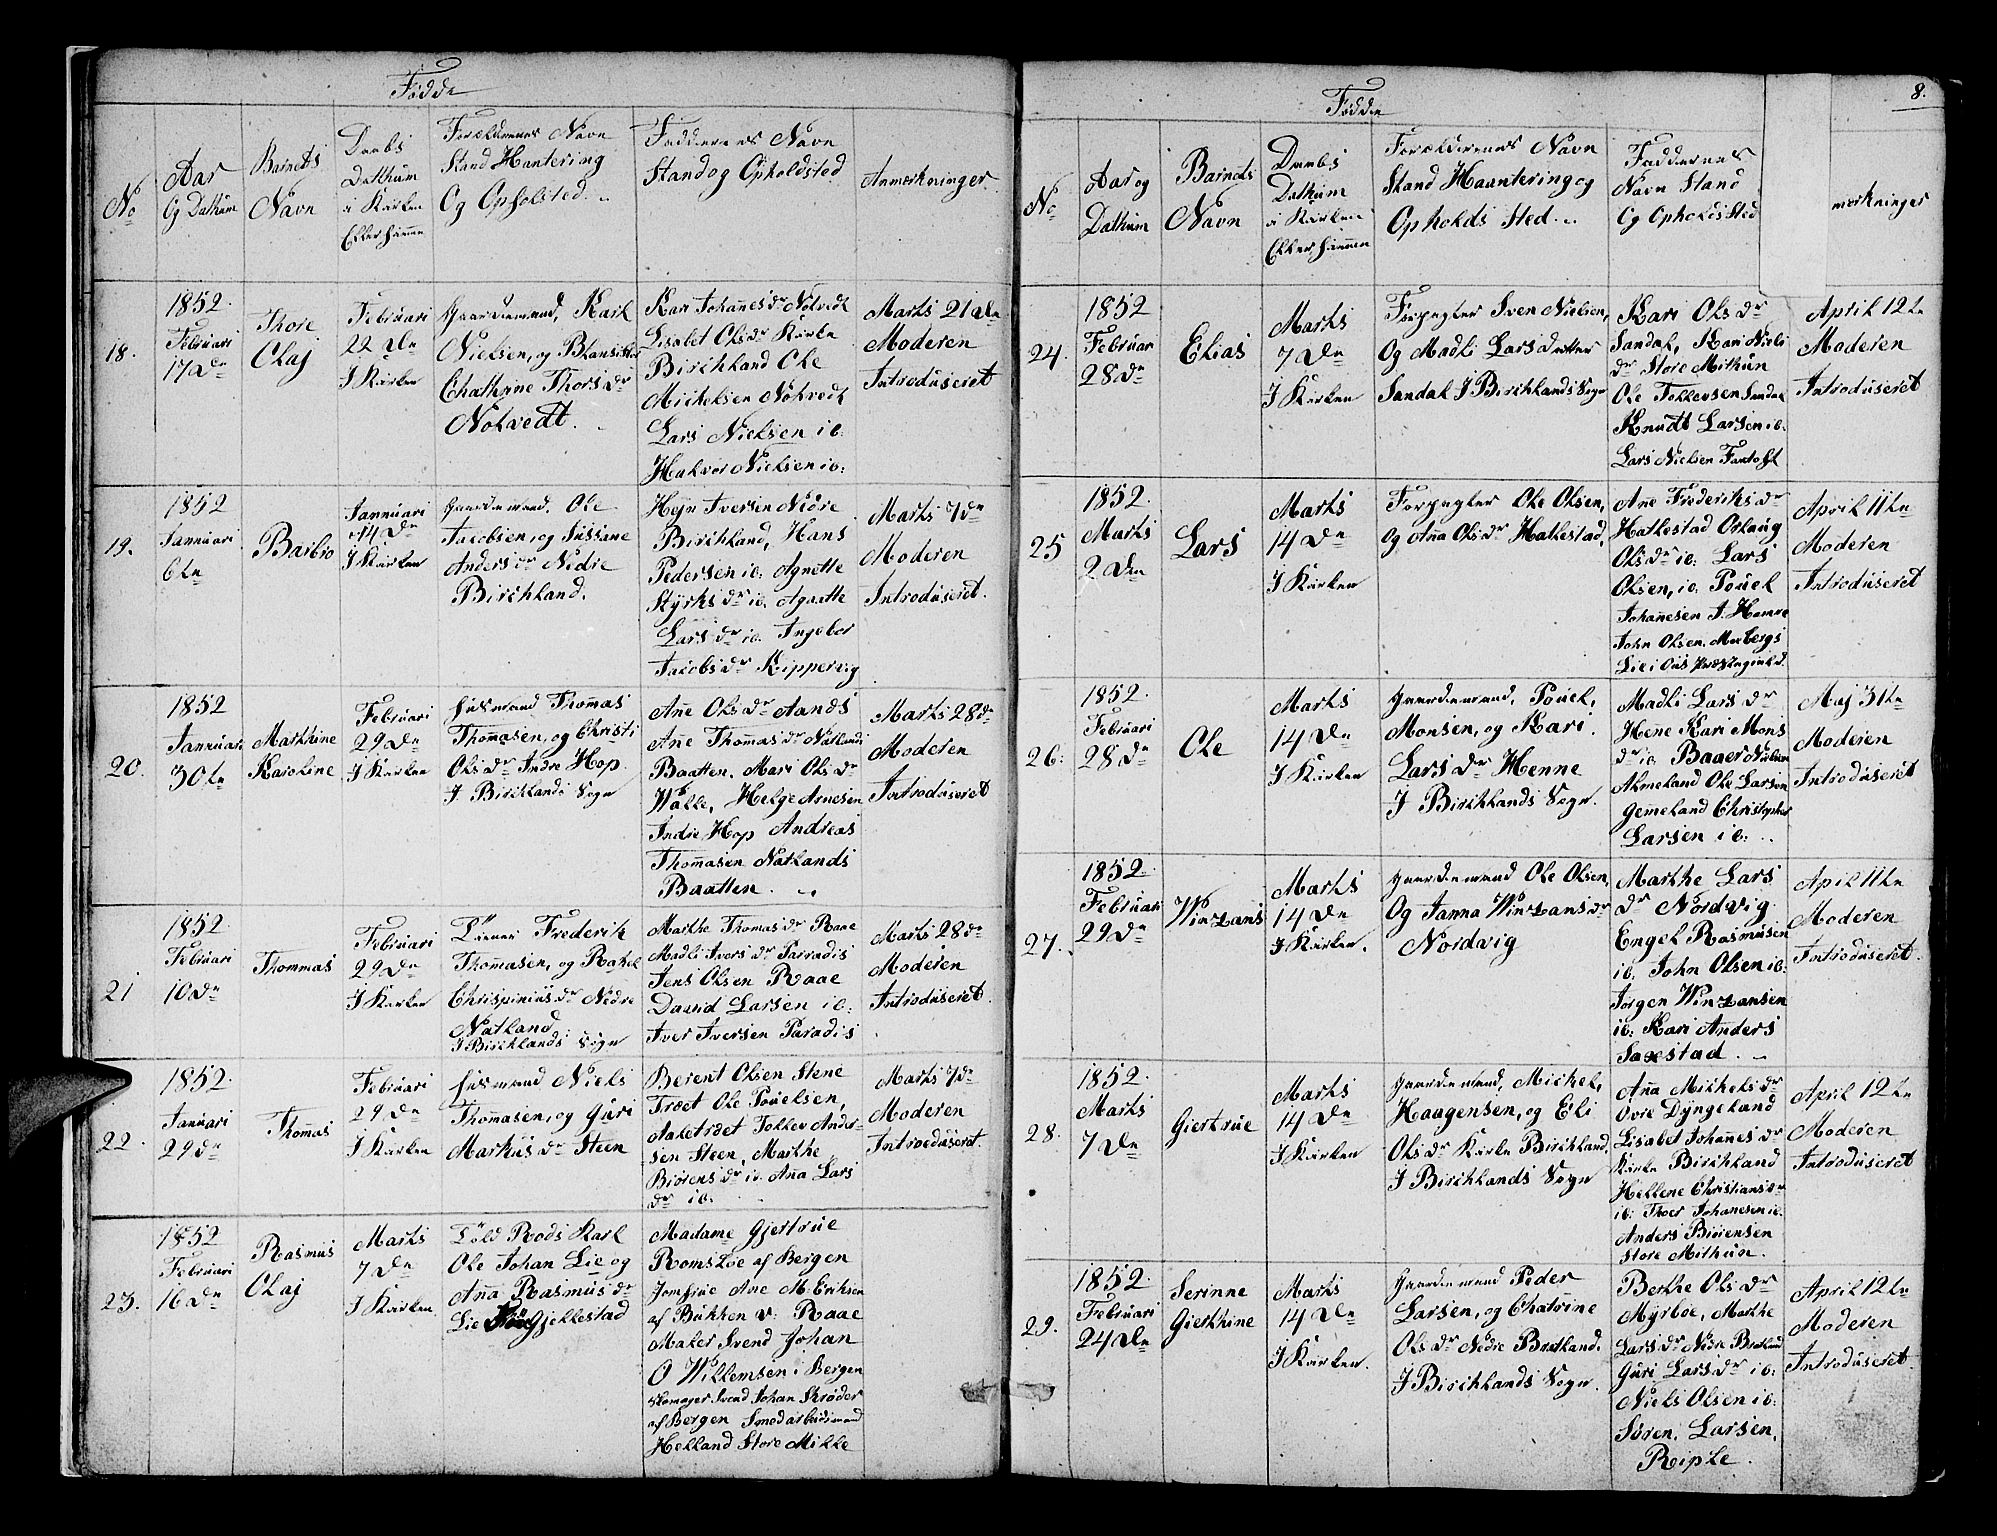 Födde
No
Aar
Og Dathum
Barnets
Navn
Daabs
Dathum
i Kirken
Eller hiemme
Forældrenes Navn
Stand Hantering
Og Opholsted
Faddernes Navn
Stand og Opholdsted
Anmerkninger
18.
1852.
Februari
17 de
Thore
Olaj
Februari
22 de
I Kirken
Gaardmand, Karl
Nielsen, og
Chathrine Thors dr
Nötvedt.
Kari Johanes dr Nötvedt
Lisabet Ols dr Kirke
Birchland Ole
Michelsen Nötvedt
Lars Nielsen ib:
Halvor Nielsen ib:
Marts 21 de
Moderen
Introdüseret
19.
1852
Jannuari
6te
Barbro
Jannuari
14 de
I Kirken
Gaardmand, Ole
Jacobsen, og Süssane
Anders dr Nedre
Birchland.
Heju Iversen Nedre
Birchland, Hans
Pedersen ib: Agnette
Styrks dr ib. Agnette
Lars dr ib. Ingebor
Jacobs dr Kippervig
Marts 7 de
Moderen
Introdüseret.
20.
1852
Jannuari
30 te
Marthine
Karoline
Februari
29 de
I Kirken
Husmand Thommas
Thommasen, og Christi
Ols dr Indre Hop
I Birchlands Sogn
Ane Ols dr Aands
Ane Thommas dr Natlands
Baatten. Mari Ols dr
Wolle, Helge Arnesen
Indre Hop Andreas
Thommasen Natlands
Baatten.
Marts 28 de
Moderen
Introdüseret
21
1852.
Februari
10 de
Thommas
Februari
29 de
I Kirken
Frederik
Thommasen, og Rakel
Chrispiniüs dr Nedre
Natland
I Birchlands Sogn
Marthe Thomas dr Raae
Madli Ivers dr Parradis
Jens Olsen Raae
David Larsen ib:
Iver Iversen Paradis
Marts 28 de
Moderen
Introdüseret.
22.
1852.
Januari
29 de
Thommas
Februari
29 de
I Kirken
Husmand Niels
Thommasen, og Güri
Markus dr Steen
Berent Olsen Stene
Træet Ole Pouelsen,
Aaletræet Tollev Ander-
sen Steen, Marthe
Biörens dr ib. Ana Lars
dr ib.
Marts 7 de
Moderen
Introdüseret.
23.
1852
Februari
16 de
Rasmus
Olaj
Marts
7 de
I Kirken
Karl
Ole Johan Lie og
Ana Rasmus dr
Lie Gjellestad
Madame Gjertrüe
Romslöe af Bergen
Jomfrüe Ane M. Eriksen
af Bukken v: Raae
Maker Svend Johan
O Willemsen i Bergen
Skomager Svend Johan Skröder
af Bergen Smedarbeidsmand
Helland Store Milke
Födde
8.
No
Aar og
Dathum
Barnets
Navn
Daabs
Dathum
i Kirken
Eller hiemme
Forælderenes Navn
Stand Haantering og
Opholds Sted
Faddernes
Navn Stand
Og Opholds Sted
merkninger
24.
1852
Februar
28 de
Elias
Marts
7 de
I Kirken
Forpagter Sven Nielsen,
Og Madli Lars datter
Sandal I Birchlands Sogn
Kari Ols dr
Sandal, Kari Niels
dr Store Milthun
Ole Tollevsen Sandal
Knudt Larsen ib:
Lars Nielsen Fantoft
April 12 te
Moderen
Introdüseret
25
1852.
Marts
2 den
Lars
Marts
14 de
I Kirken
Forpagter Ole Olsen,
og Ana Ols dr Hatlestad.
Ane Frederiks dr
Hatlestad Orlaug
Ols dr ib: Lars
Olsen, ib: Pouel
Johanesen I. Hamre
John Olsen. Morbergs
Lie i Ous Præstegield.
April 11 te
Moderen
Introdüseret
26:
1852.
Februari
28 de
Ole
Marts
14 de
I Kirken
Gaardmand, Pouel,
Monsen, og Kari
Lars dr Henne
I Birchlands Sogn.
Madli Lars dr
Henne Kari Mons
dr ib. Baaer Nielsen
Almeland Ole Larsen
Gemeland Christopher
Larsen ib:
Maj 31 te
Moderen
Introdüseret
27.
1852.
Februari
29 de
Winzans
Marts
14 de
I Kirken.
Gaardmand Ole Olsen,
Og Janna Winzans dr
Nordvig
Marthe Lars
dr Nordvig.
Engel Rasmusen
ib. John Olsen ib:
Jörgen Winzansen
ib: Kari Anders
Saxestad.
April 11 te
Moderen
Introdüseret.
28.
1852.
Marts
7 de
Giertrüe
Marts
14 de
I Kirken
Gaardmand, Michel,
Haagensen, og Eli
Ols dr Kirke Birchland.
I Birchlands Sogn
Ana Michels dr
Övre Dyngeland
Lisabet Johanes dr
Kirke Birchland
Hellene Christians dr
ib: Thoer Johanesen ib.
Anders Biörensen
Store Milthun.
April 12 te
Moderen
Introdüseret
29.
1852.
Februari
24 de
Serinne
Gierthine
Marts
14 de
I Kirken.
Gaardmand Peder
Larsen, og Chatrine
Ols dr Nedre Birchland.
I Birchlands Sogn.
Berthe Ols dr
Myrböe, Marthe
Lars dr Nedre Birchland
Güri Lars dr ib:
Niels Olsen ib:
Sören. Larsen,
Riple.
April 12 te
Moderen
Introdüseret.